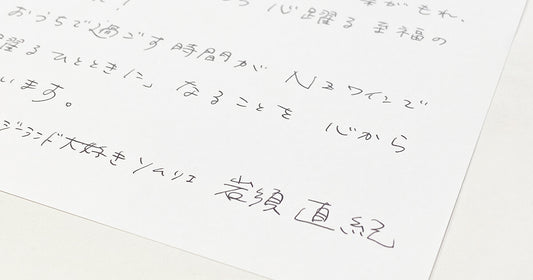 心躍る至福の
おうちで過ごす時間が NZワインで
躍るひとときに、なることを 心から
います。
ジーランド大好きソムリエ 岩須 直紀